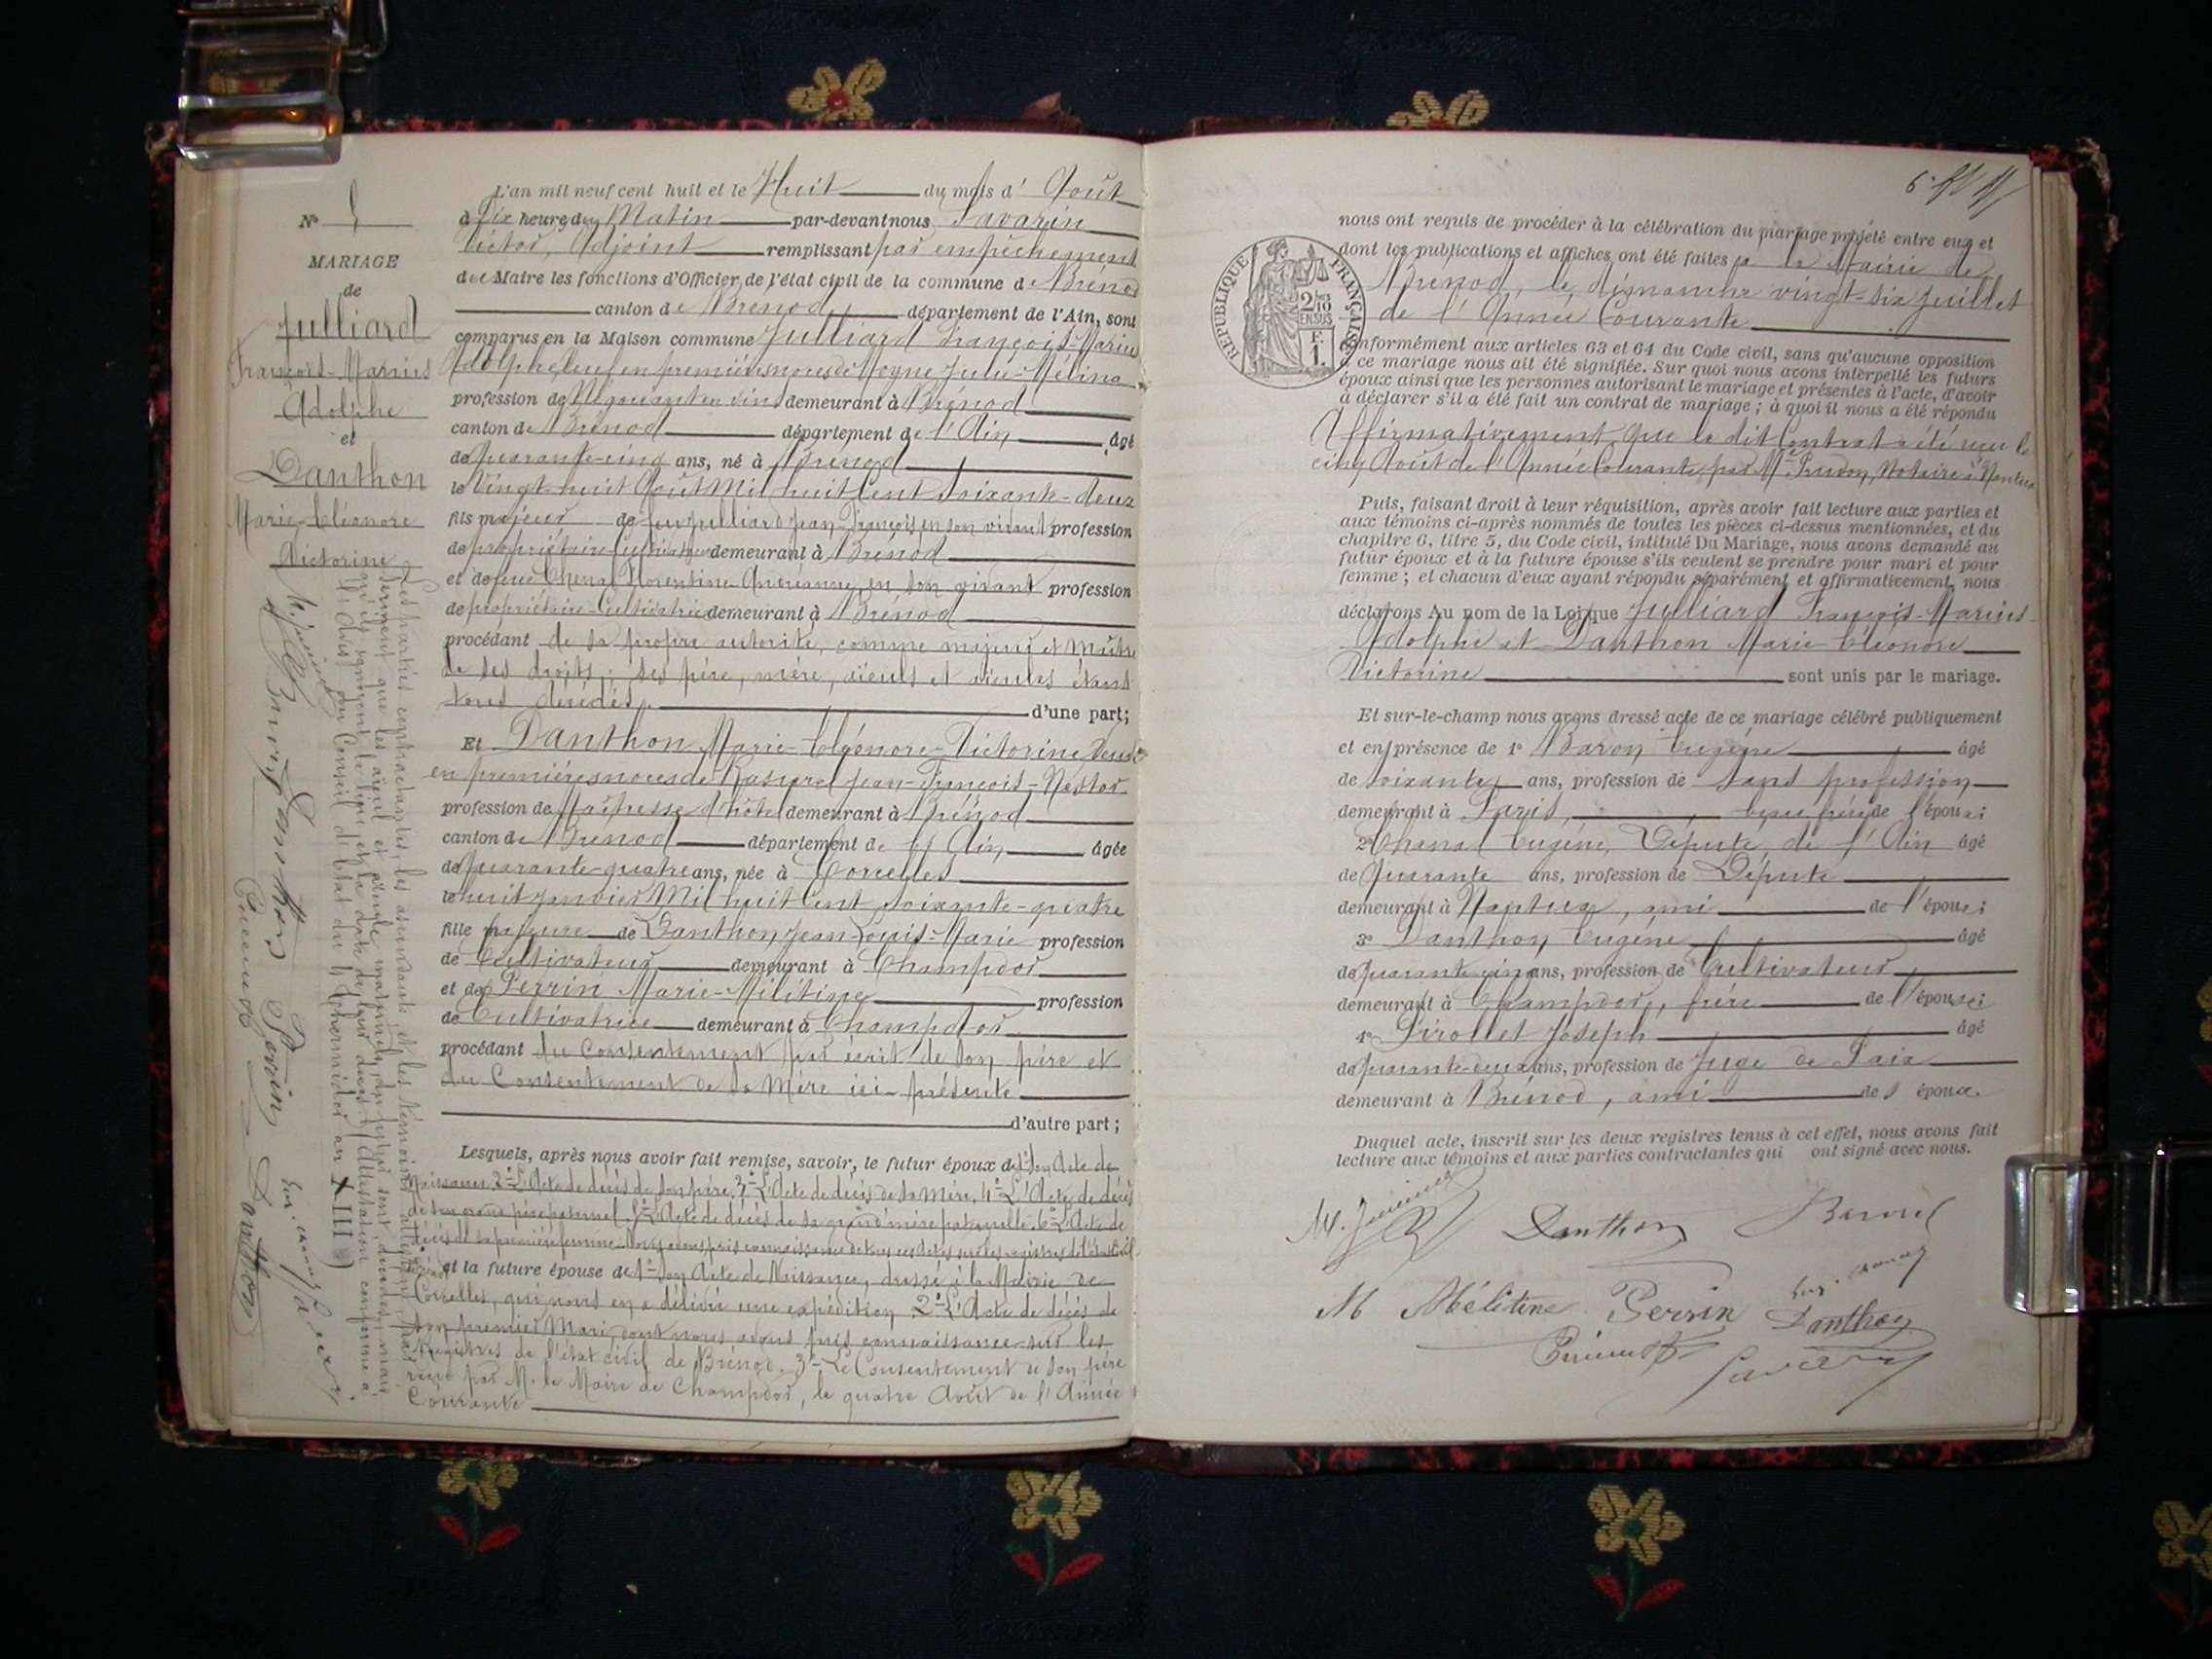 L'an mil neuf cent huit et le Huit du mois d' Août
à Dix heures du Matin par-devant nous Savarin
Victor, Adjoint remplissant par empêchement
du Maire les fonctions d'Officier de l'état civil de la commune de Brénod
canton de Brénod département de l'Ain, sont
comparus en la Maison commune Julliard François-Marius
Adolphe, veuf en premières noces de Moyne Julie-Mélina
profession de Négociant en vins demeurant à Brénod
canton de Brénod département de l'Ain âgé
de Quarante-cinq ans, né à Brénod
le Vingt-huit Août Mil huit Cent Soixante-deux
fils majeur de feu Julliard Jean-François, en son vivant profession
de propriétaire-Cultivateur demeurant à Brénod
et de feue Chenal Florentine en son vivant profession
de propriétaire-Cultivatrice demeurant à Brénod
procédant de sa propre autorité, comme majeur et Maître
de ses droits; ses père, mère, aïeuls et aïeules étant
tous décédés. d'une part;
Et Danthon Marie-Cléonore-Victorine, Veuve
en premières noces de Jean-François-Nestor
profession de Maîtresse d'hôtel demeurant à Brénod
canton de Brénod département de l'Ain âgée
de Quarante-quatre ans, née à Corcelles
le huit Janvier Mil huit Cent Soixante-quatre
fille majeure de Danthon Jean-Louis-Marie profession
de Cultivateur demeurant à Champdor
et de Perrin Marie-Mélitine profession
de Cultivatrice demeurant à Champdor
procédant du Consentement par écrit de son père et
du Consentement de sa Mère ici-présente
d'autre part;
Lesquels, après nous avoir fait remise, savoir, le futur époux de 1° Son Acte de
Naissance. 2° L'Acte de décès de son père. 3° L'Acte de décès de sa Mère. 4° L'Acte de décès
de son grand père paternel. 5° L'Acte de décès de sa grand'mère paternelle. 6° L'Acte de
décès de sa première femme. Nous avons pris connaissance de tous ces actes sur les registres de l'état civil
et la future épouse de 1° Son Acte de Naissance, dressé à la Mairie de
Corcelles, qui nous en a délivré une expédition. 2° L'Acte de décès de
son premier Mari, dont nous avons pris connaissance sur les
Registres de l'état civil de Brénod. 3° Le Consentement de son père
reçu par M. le Maire de Champdor, le quatre Août de l'Année
Courante
N°
MARIAGE
de
Julliard
François-Marius
Adolphe
et
Danthon
Marie-Cléonore
Victorine
Les parties contractantes, les ascendants et les témoins attestent, par
serment que les aïeul et aïeule maternels du futur sont décédés, mais
qu'ils ignorent le lieu et la date de leur décès (Attestation conforme à
l'Avis du Conseil d'état du 4 thermidor an XIII)
Danthon Perrin Danthon
nous ont requis de procéder à la célébration du mariage projeté entre eux et
dont les publications et affiches ont été faites à la Mairie de
Brénod, le dimanche vingt-six Juillet
de l'Année Courante
RÉPUBLIQUE FRANÇAISE
2/10 EN SUS
F. 1.
conformément aux articles 63 et 64 du Code civil, sans qu'aucune opposition
à ce mariage nous ait été signifiée. Sur quoi nous avons interpellé les futurs
époux ainsi que les personnes autorisant le mariage et présentes à l'acte, d'avoir
à déclarer s'il a été fait un contrat de mariage; à quoi il nous a été répondu
Affirmativement, que le dit Contrat a été reçu le
cinq Août de l'Année Courante, par Me Prudon, Notaire à Nantua
Puis, faisant droit à leur réquisition, après avoir fait lecture aux parties et
aux témoins ci-après nommés de toutes les pièces ci-dessus mentionnées, et du
chapitre 6, titre 5, du Code civil, intitulé Du Mariage, nous avons demandé au
futur époux et à la future épouse s'ils veulent se prendre pour mari et pour
femme; et chacun d'eux ayant répondu séparément et affirmativement, nous
déclarons Au nom de la Loi que Julliard François-Marius
Adolphe et Danthon Marie-Cléonore
Victorine sont unis par le mariage.
Et sur-le-champ nous avons dressé acte de ce mariage célébré publiquement
et en présence de 1° Baron Eugène âgé
de soixante ans, profession de Sans profession
demeurant à Paris, beau frère de l'époux;
2° Chanal Eugène, Député de l'Ain âgé
de Quarante ans, profession de Député
demeurant à Nantua, ami de l'époux;
3° Danthon Eugène âgé
de quarante-cinq ans, profession de Cultivateur
demeurant à Champdor, frère de l'épouse;
4° Pirollet Joseph âgé
de Quarante-deux ans, profession de Juge de Paix
demeurant à Brénod, ami de l'époux.
Duquel acte, inscrit sur les deux registres tenus à cet effet, nous avons fait
lecture aux témoins et aux parties contractantes qui ont signé avec nous.
Danthon
M Mélitine Perrin Danthon